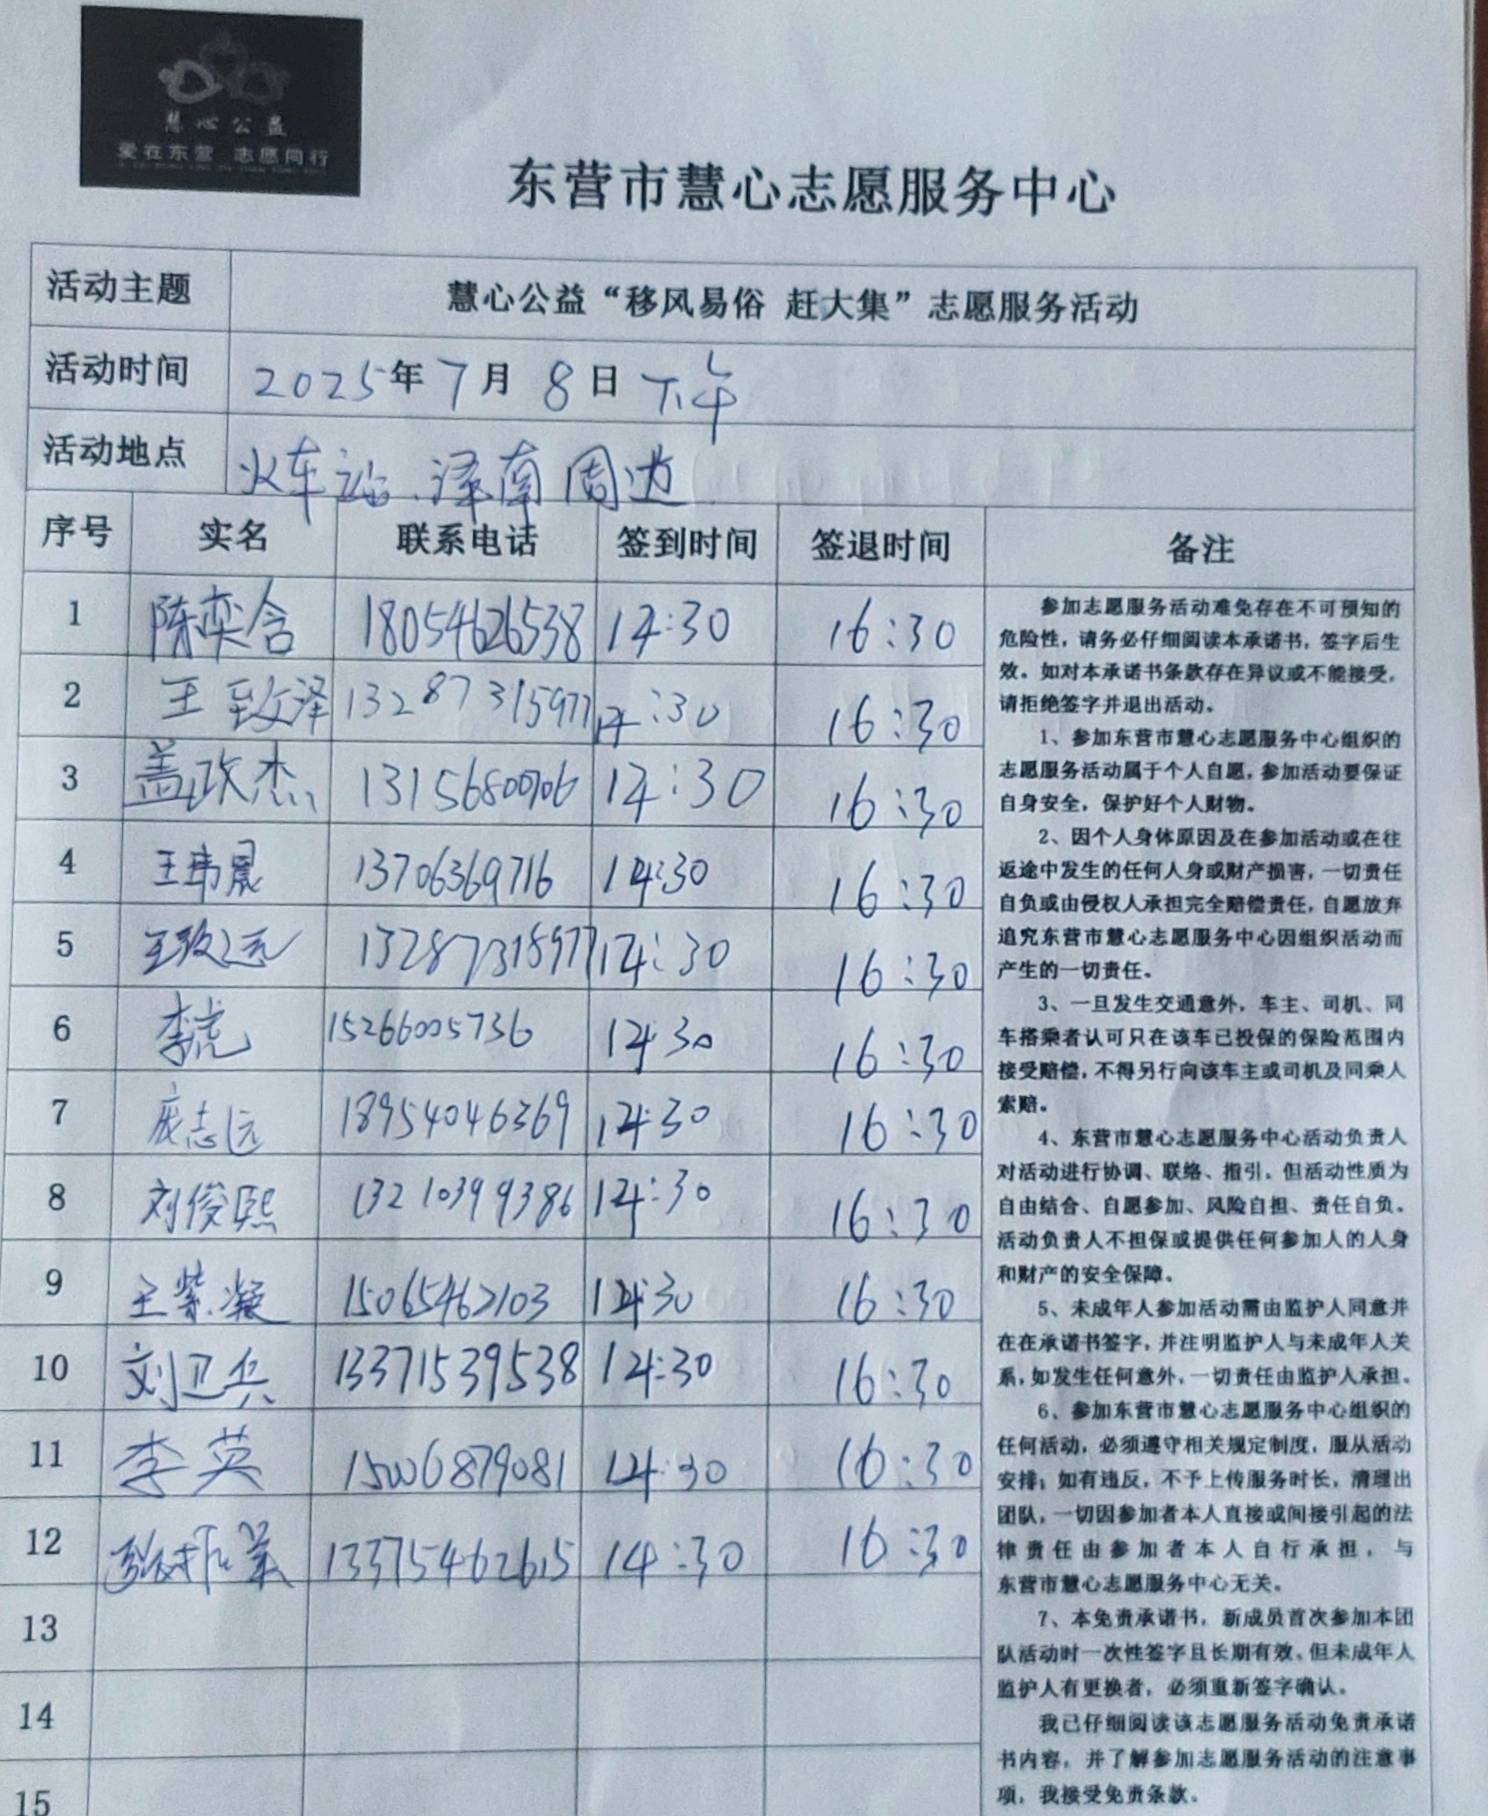 慧心公益
爱在东营 志愿同行
东营市慧心志愿服务中心
活动主题 慧心公益“移风易俗 赶大集”志愿服务活动
活动时间 2025年7月8日下午
活动地点 火车站、泽南周边
序号 实名 联系电话 签到时间 签退时间 备注
1 陈奕含 18054626538 14:30 16:30
2 王致泽 13287315977 14:30 16:30
3 盖政杰 13156800706 14:30 16:30
4 王玮晨 13706369716 14:30 16:30
5 王致远 13287315977 14:30 16:30
6 李虎 15266005736 14:30 16:30
7 庞志远 18954046369 14:30 16:30
8 刘俊熙 13210399386 14:30 16:30
9 王紫凝 15065462103 14:30 16:30
10 刘卫兵 13371539538 14:30 16:30
11 李英 15006879081 14:30 16:30
12 13375462615 14:30 16:30
13
14
15
参加志愿服务活动难免存在不可预知的
危险性，请务必仔细阅读本承诺书，签字后生
效。如对本承诺书条款存在异议或不能接受，
请拒绝签字并退出活动。
1、参加东营市慧心志愿服务中心组织的
志愿服务活动属于个人自愿，参加活动要保证
自身安全，保护好个人财物。
2、因个人身体原因及在参加活动或在往
返途中发生的任何人身或财产损害，一切责任
自负或由侵权人承担完全赔偿责任，自愿放弃
追究东营市慧心志愿服务中心因组织活动而
产生的一切责任。
3、一旦发生交通意外，车主、司机、同
车搭乘者认可只在该车已投保的保险范围内
接受赔偿，不得另行向该车主或司机及同乘人
索赔。
4、东营市慧心志愿服务中心活动负责人
对活动进行协调、联络、指引，但活动性质为
自由结合、自愿参加、风险自担、责任自负。
活动负责人不担保或提供任何参加人的人身
和财产的安全保障。
5、未成年人参加活动需由监护人同意并
在在承诺书签字，并注明监护人与未成年人关
系，如发生任何意外，一切责任由监护人承担。
6、参加东营市慧心志愿服务中心组织的
任何活动，必须遵守相关规定制度，服从活动
安排；如有违反，不予上传服务时长，清理出
团队，一切因参加者本人直接或间接引起的法
律责任由参加者本人自行承担，与
东营市慧心志愿服务中心无关。
7、本免责承诺书，新成员首次参加本团
队活动时一次性签字且长期有效、但未成年人
监护人有更换者，必须重新签字确认。
我已仔细阅读该志愿服务活动免责承诺
书内容，并了解参加志愿服务活动的注意事
项，我接受免责条款。